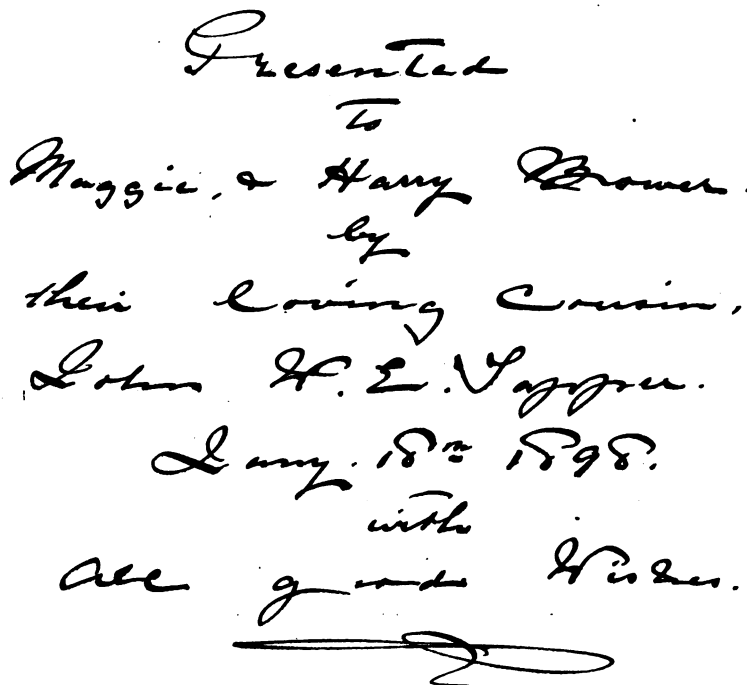 Presented
to
Maggie, & Harry Brower.
by
their loving Cousin,
John W. E. Tapper.
Jany. 18th 1898.
with
all good Wishes.